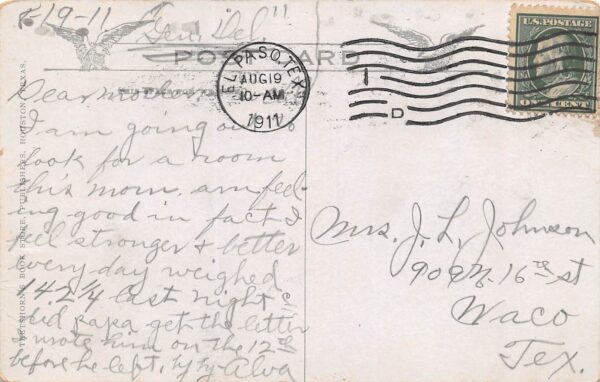 8-19-11 "Gen. Del."
POST CARD
EL PASO, TEX.
AUG 19
10-AM
1911
D
U.S. POSTAGE
ONE CENT
Dear mother
I am going out to
look for a room
this morn. am feel-
ing good in fact I
feel stronger & better
every day weighed
142 1/4 last night
did papa get the letter
I wrote him on the 12th
before he left. by by Alva
Mrs. J. L. Johnson
909 N. 16th st
Waco
Tex.
BOOK STORE, PUBLISHERS, HOUSTON, TEXAS.